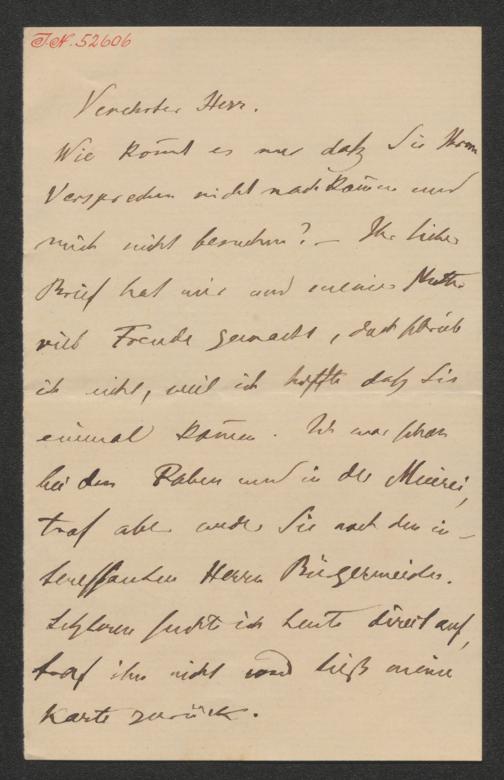 J.N. 52606
Verehrter Herr.
Wie kom̅t es nur daß Sie Ihrem
Versprechen nicht nachkom̅en und
mich nicht besuchen? – Ihr lieber
Brief hat mir und meiner Mutter
viel Freude gemacht, doch schrieb
ich nicht, weil ich hoffte daß Sie
einmal kom̅en. Ich war schon
bei den Raben und in der Meierei,
traf aber weder Sie noch den in-
teressanten Herrn Bürgermeister.
Letzteren suchte ich heute direct auf,
traf ihn nicht und ließ meine
Karte zurück.